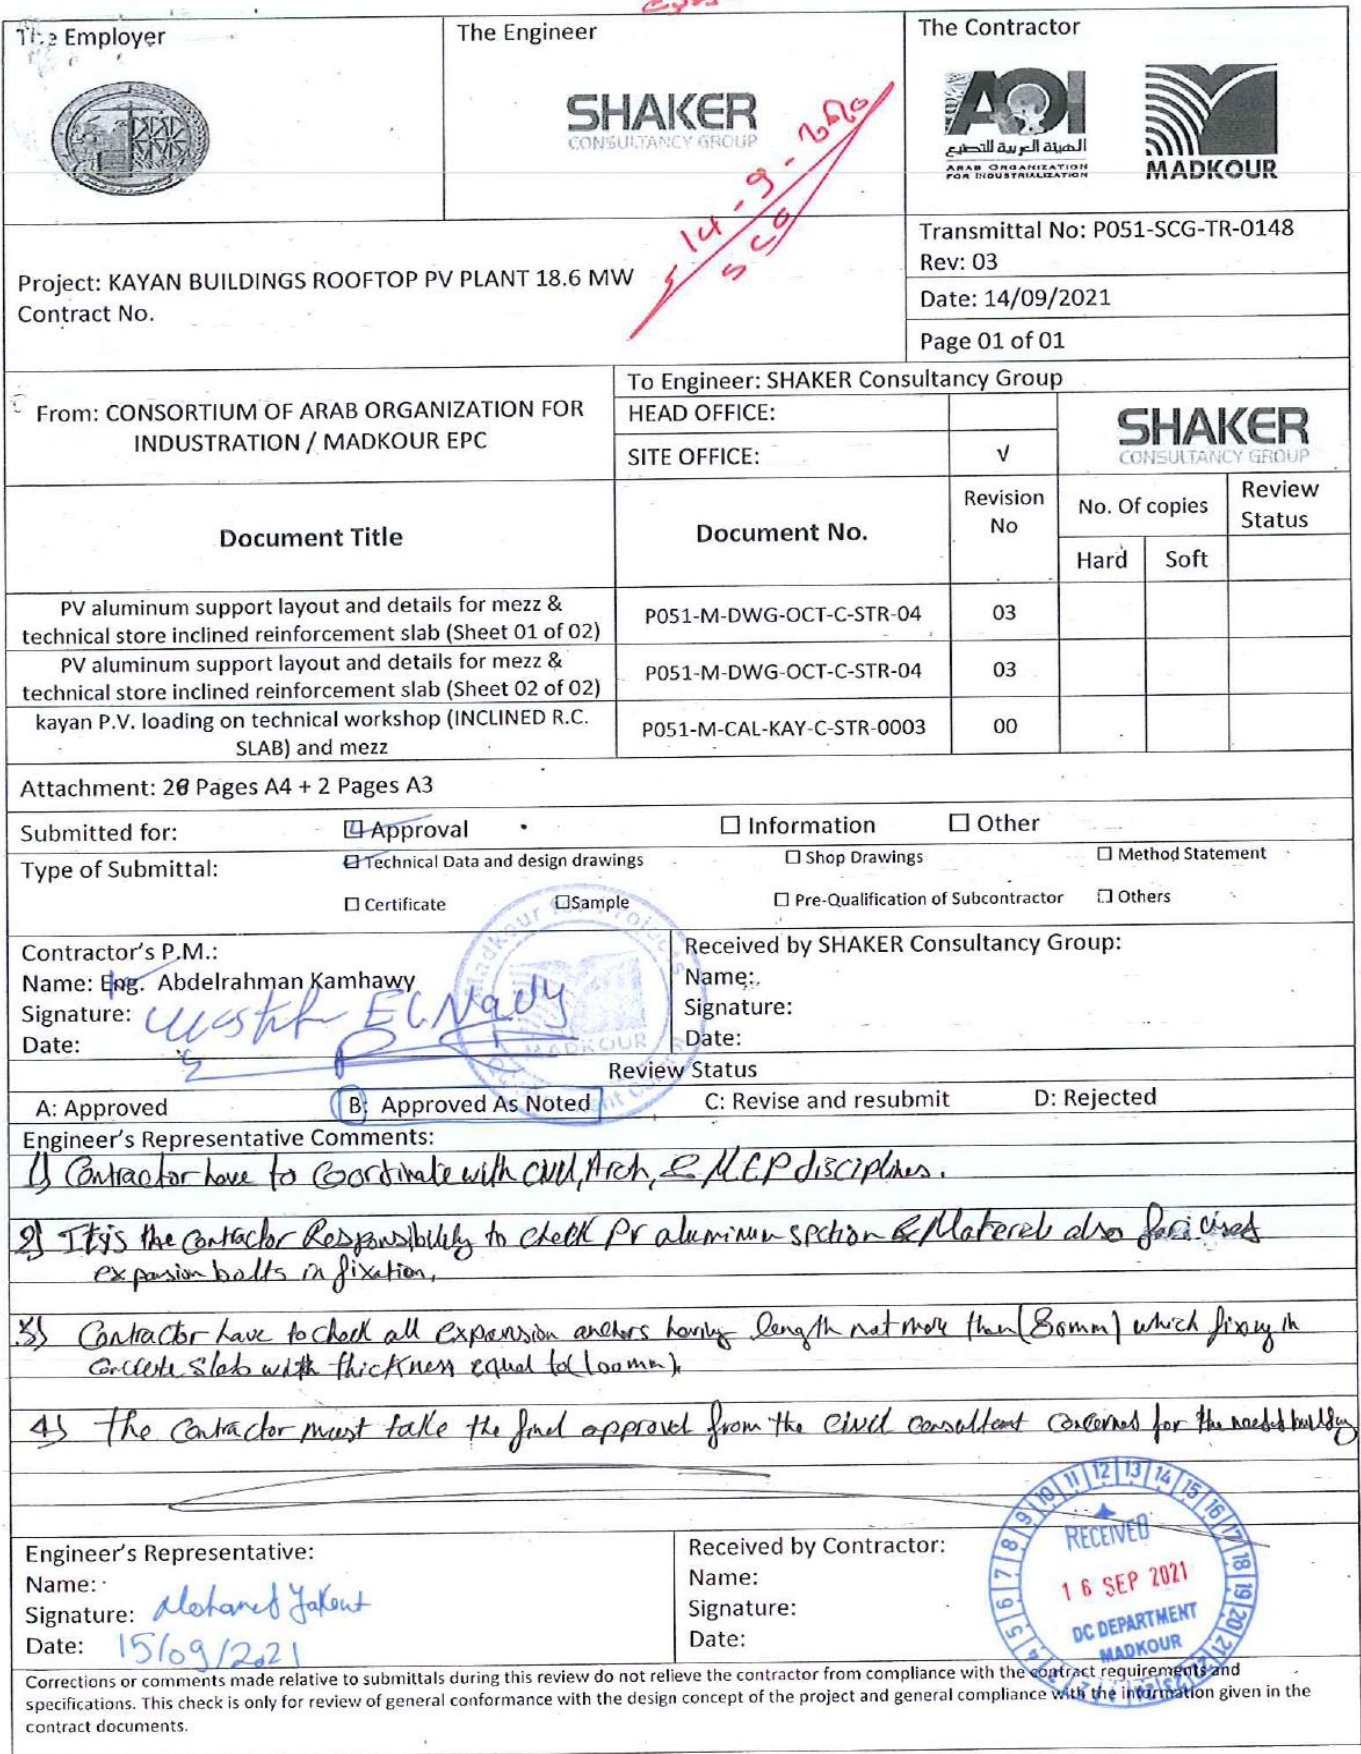 The Employer
The Engineer
SHAKER
CONSULTANCY GROUP
The Contractor
AOI
الهيئة العربية للتصنيع
ARAB ORGANIZATION
FOR INDUSTRIALIZATION
MADKOUR
14-9-
SCG
Project: KAYAN BUILDINGS ROOFTOP PV PLANT 18.6 MW
Contract No.
Transmittal No: P051-SCG-TR-0148
Rev: 03
Date: 14/09/2021
Page 01 of 01
From: CONSORTIUM OF ARAB ORGANIZATION FOR
INDUSTRATION / MADKOUR EPC
To Engineer: SHAKER Consultancy Group
HEAD OFFICE:
SITE OFFICE: √
SHAKER
CONSULTANCY GROUP
Document Title
Document No.
Revision
No
No. Of copies
Review
Status
Hard Soft
PV aluminum support layout and details for mezz &
technical store inclined reinforcement slab (Sheet 01 of 02)
P051-M-DWG-OCT-C-STR-04 03
PV aluminum support layout and details for mezz &
technical store inclined reinforcement slab (Sheet 02 of 02)
P051-M-DWG-OCT-C-STR-04 03
kayan P.V. loading on technical workshop (INCLINED R.C.
SLAB) and mezz
P051-M-CAL-KAY-C-STR-0003 00
Attachment: 20 Pages A4 + 2 Pages A3
Submitted for: Approval Information Other
Type of Submittal: Technical Data and design drawings Shop Drawings Method Statement
Certificate Sample Pre-Qualification of Subcontractor Others
Contractor's P.M.:
Name: Eng. Abdelrahman Kamhawy
Signature: El Nady
Date:
Madkour for Projects
MADKOUR
Received by SHAKER Consultancy Group:
Name:
Signature:
Date:
Review Status
A: Approved B: Approved As Noted C: Revise and resubmit D: Rejected
Engineer's Representative Comments:
1) Contractor have to Coordinate with civil, Arch, & M.E.P disciplines.
2) It is the contractor Responsibility to check PV aluminum section & Materels also for used
expansion bolts in fixation.
3) Contractor have to check all expansion anchors having length not more than (80mm) which fixing in
concrete slab with thickness equal to (100mm).
4) The contractor must take the final approvel from the civil consultant concerned for the needed building
Engineer's Representative:
Name:
Signature: Mohamed Yakout
Date: 15/09/2021
Received by Contractor:
Name:
Signature:
Date:
RECEIVED
16 SEP 2021
DC DEPARTMENT
MADKOUR
5 6 7 8 9 10 11 12 13 14 15 16 17 18 19 20 21
Corrections or comments made relative to submittals during this review do not relieve the contractor from compliance with the contract requirements and
specifications. This check is only for review of general conformance with the design concept of the project and general compliance with the information given in the
contract documents.